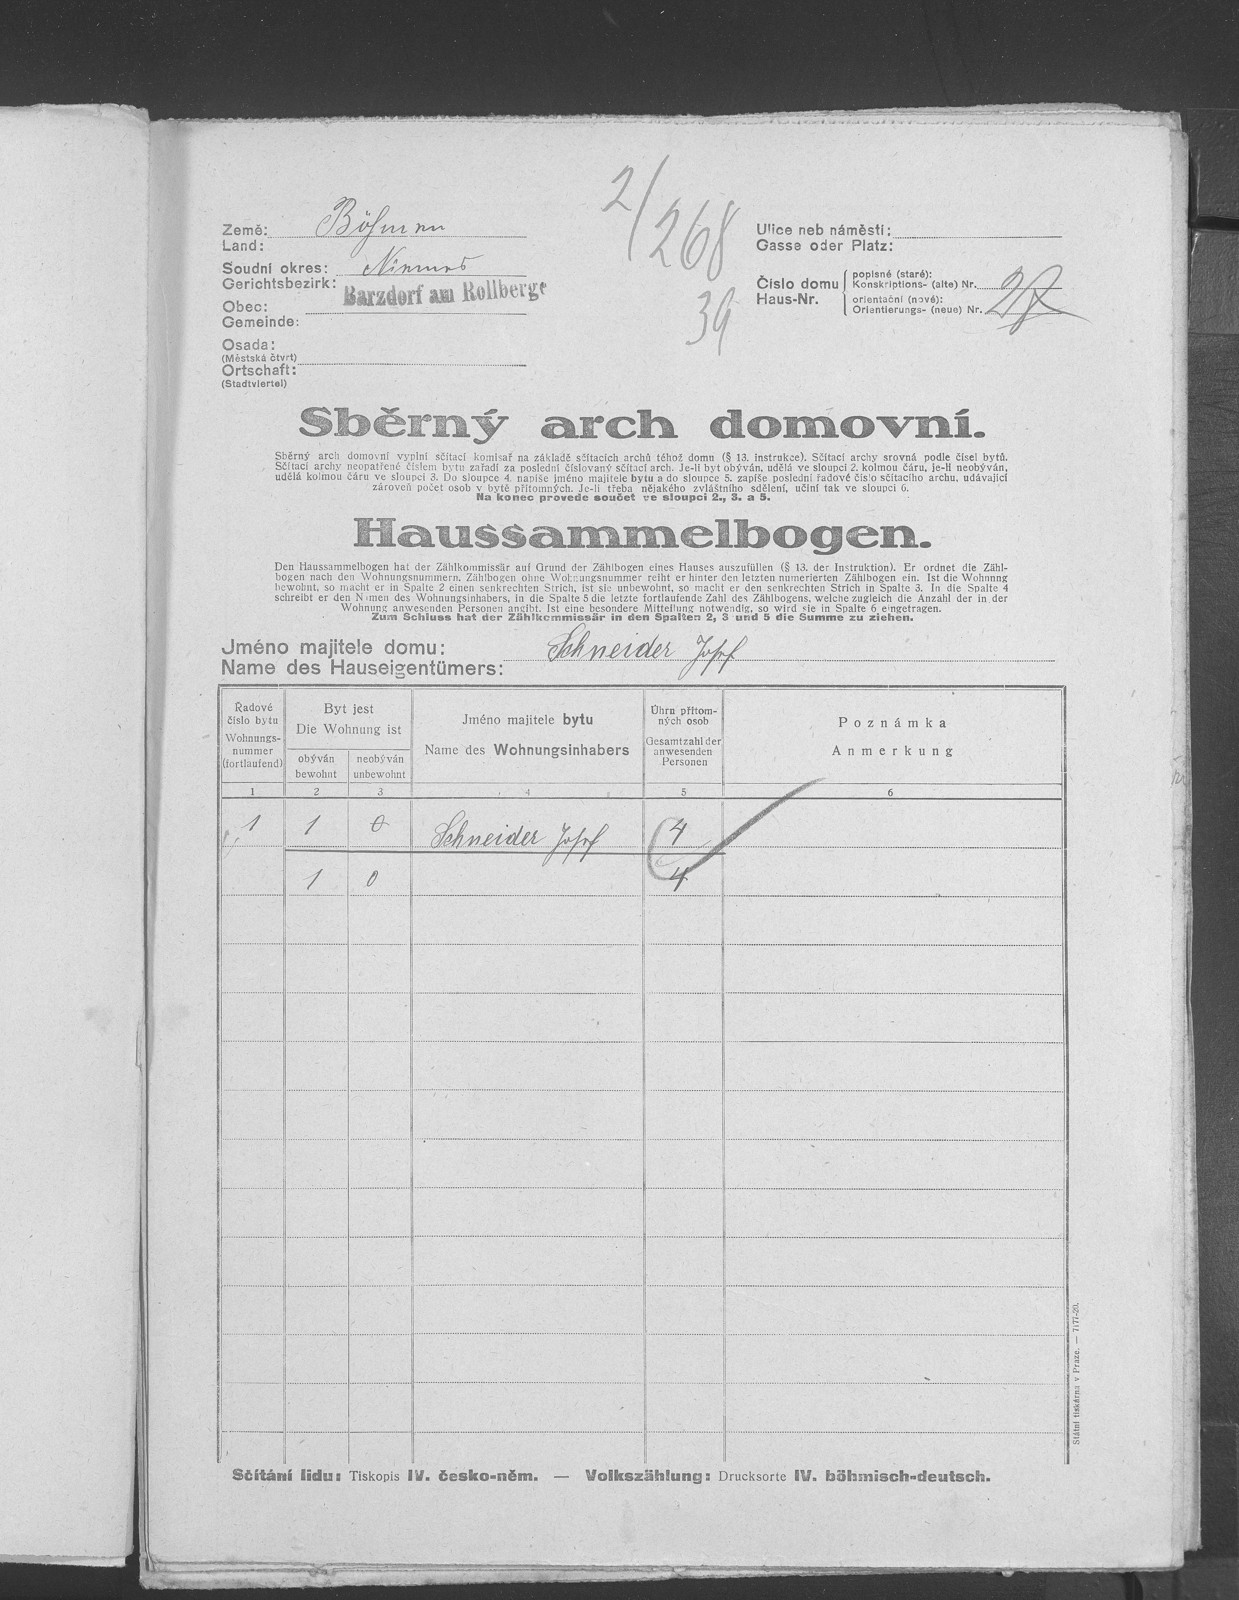 2/268
39
Země: Böhmen
Land:
Soudní okres: Niemes
Gerichtsbezirk:
Barzdorf am Rollberge
Obec:
Gemeinde:
Osada:
(Městská čtvrt)
Ortschaft:
(Stadtviertel)
Ulice neb náměstí:
Gasse oder Platz:
Číslo domu
Haus-Nr.
popisné (staré):
Konskriptions- (alte) Nr.
orientační (nové):
Orientierungs- (neue) Nr.
Sběrný arch domovní.
Sběrný arch domovní vyplní sčítací komisař na základě sčítacích archů téhož domu (§ 13. instrukce). Sčítací archy srovná podle čísel bytů.
Sčítací archy neopatřené číslem bytu zařadí za poslední číslovaný sčítací arch. Je-li byt obýván, udělá ve sloupci 2. kolmou čáru, je-li neobýván,
udělá kolmou čáru ve sloupci 3. Do sloupce 4. napíše jméno majitele bytu a do sloupce 5. zapíše poslední řadové číslo sčítacího archu, udávající
zároveň počet osob v bytě přítomných. Je-li třeba nějakého zvláštního sdělení, učiní tak ve sloupci 6.
Na konec provede součet ve sloupci 2., 3. a 5.
Haussammelbogen.
Den Haussammelbogen hat der Zählkommissär auf Grund der Zählbogen eines Hauses auszufüllen (§ 13. der Instruktion). Er ordnet die Zähl-
bogen nach den Wohnungsnummern. Zählbogen ohne Wohnungsnummer reiht er hinter den letzten numerierten Zählbogen ein. Ist die Wohnnng
bewohnt, so macht er in Spalte 2 einen senkrechten Strich, ist sie unbewohnt, so macht er den senkrechten Strich in Spalte 3. In die Spalte 4
schreibt er den Namen des Wohnungsinhabers, in die Spalte 5 die letzte fortlaufende Zahl des Zählbogens, welche zugleich die Anzahl der in der
Wohnung anwesenden Personen angibt. Ist eine besondere Mitteilung notwendig, so wird sie in Spalte 6 eingetragen.
Zum Schluss hat der Zählkommissär in den Spalten 2, 3 und 5 die Summe zu ziehen.
Jméno majitele domu: Schneider Josef
Name des Hauseigentümers:
Řadové
číslo bytu
Wohnungs-
nummer
(fortlaufend)
Byt jest
Die Wohnung ist
obýván
bewohnt
neobýván
unbewohnt
Jméno majitele bytu
Name des Wohnungsinhabers
Úhrn přítom-
ných osob
Gesamtzahl der
anwesenden
Personen
Poznámka
Anmerkung
1 2 3 4 5 6
1 1 0 Schneider Josef 4
1 0 4
Sčítání lidu: Tiskopis IV. česko-něm. — Volkszählung: Drucksorte IV. böhmisch-deutsch.
Státní tiskárna v Praze. — 7177-20.